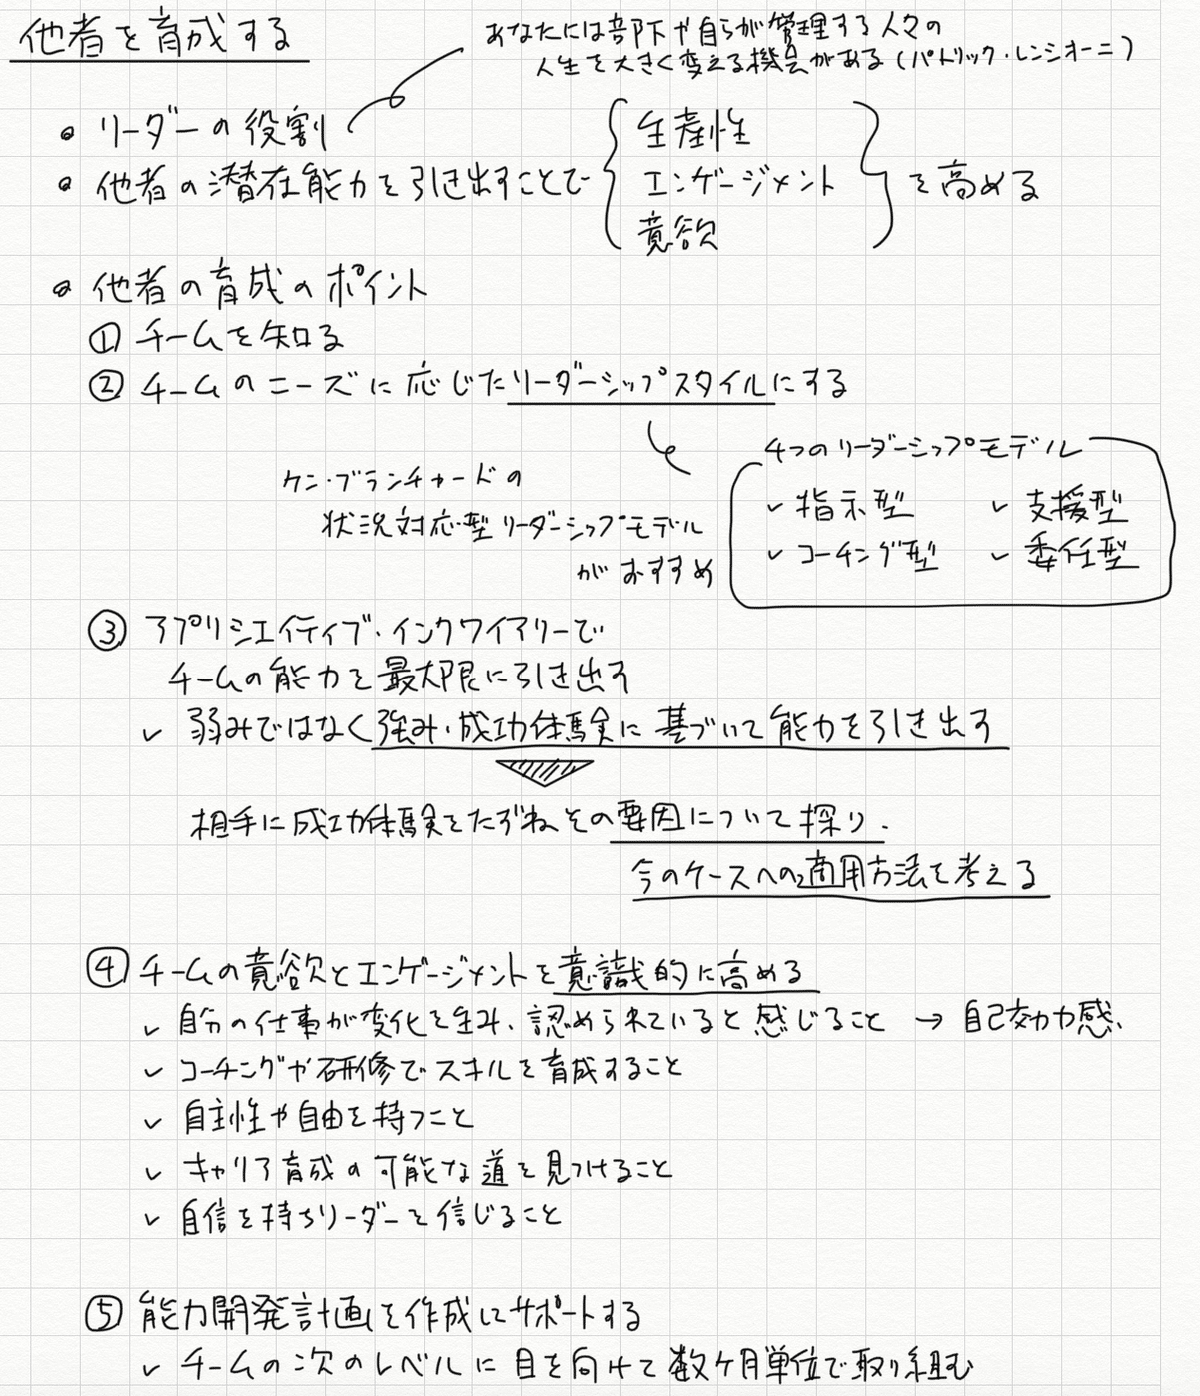 他者を育成する
あなたには部下や自らが管理する人々の
人生を大きく変える機会がある(パトリック・レンシオーニ)
• リーダーの役割
• 他者の潜在能力を引き出すことで
生産性
エンゲージメント
意欲
を高める
• 他者の育成のポイント
① チームを知る
② チームのニーズに応じたリーダーシップスタイルにする
ケン・ブランチャードの
状況対応型リーダーシップモデル
がおすすめ
4つのリーダーシップモデル
✓ 指示型 ✓ 支援型
✓ コーチング型 ✓ 委任型
③ アプリシエイティブ・インクワイアリーで
チームの能力を最大限に引き出す
✓ 弱みではなく強み・成功体験に基づいて能力を引き出す
相手に成功体験をたずねその要因について探り、
今のケースへの適用方法を考える
④ チームの意欲とエンゲージメントを意識的に高める
✓ 自分の仕事が変化を生み、認められていると感じること → 自己効力感、
✓ コーチングや研修でスキルを育成すること
✓ 自主性や自由を持つこと
✓ キャリア育成の可能な道を見つけること
✓ 自信を持ちリーダーを信じること
⑤ 能力開発計画を作成しサポートする
✓ チームの次のレベルに目を向けて数ケ月単位で取り組む